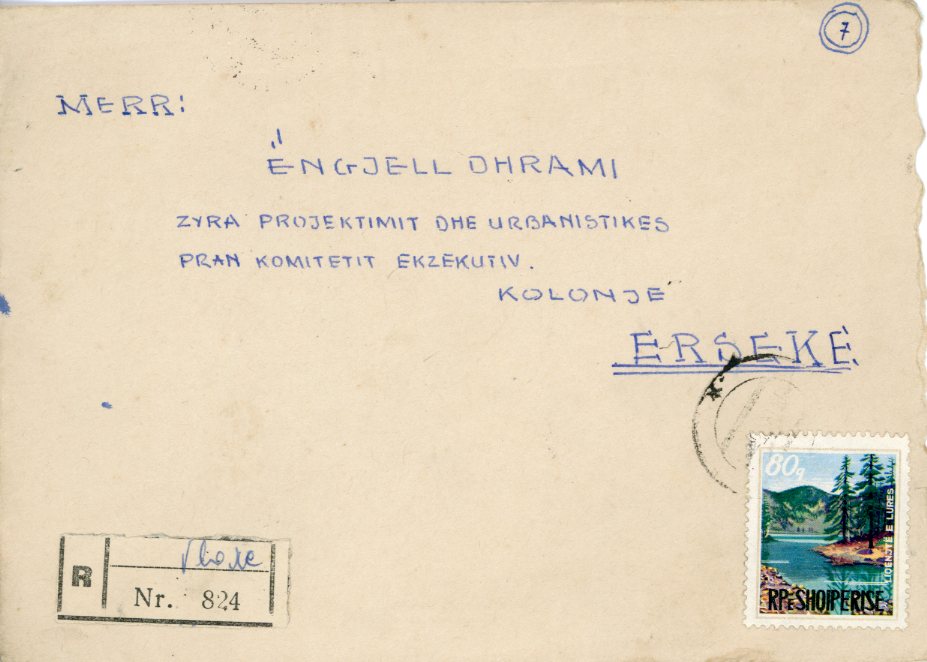 7
MERR:
ËNGJELL DHRAMI
ZYRA PROJEKTIMIT DHE URBANISTIKES
PRAN KOMITETIT EKZEKUTIV.
KOLONJE
ERSEKE
80q
LIQENJTË E LURËS
RP E SHQIPERISE
R
Vlorë
Nr. 824